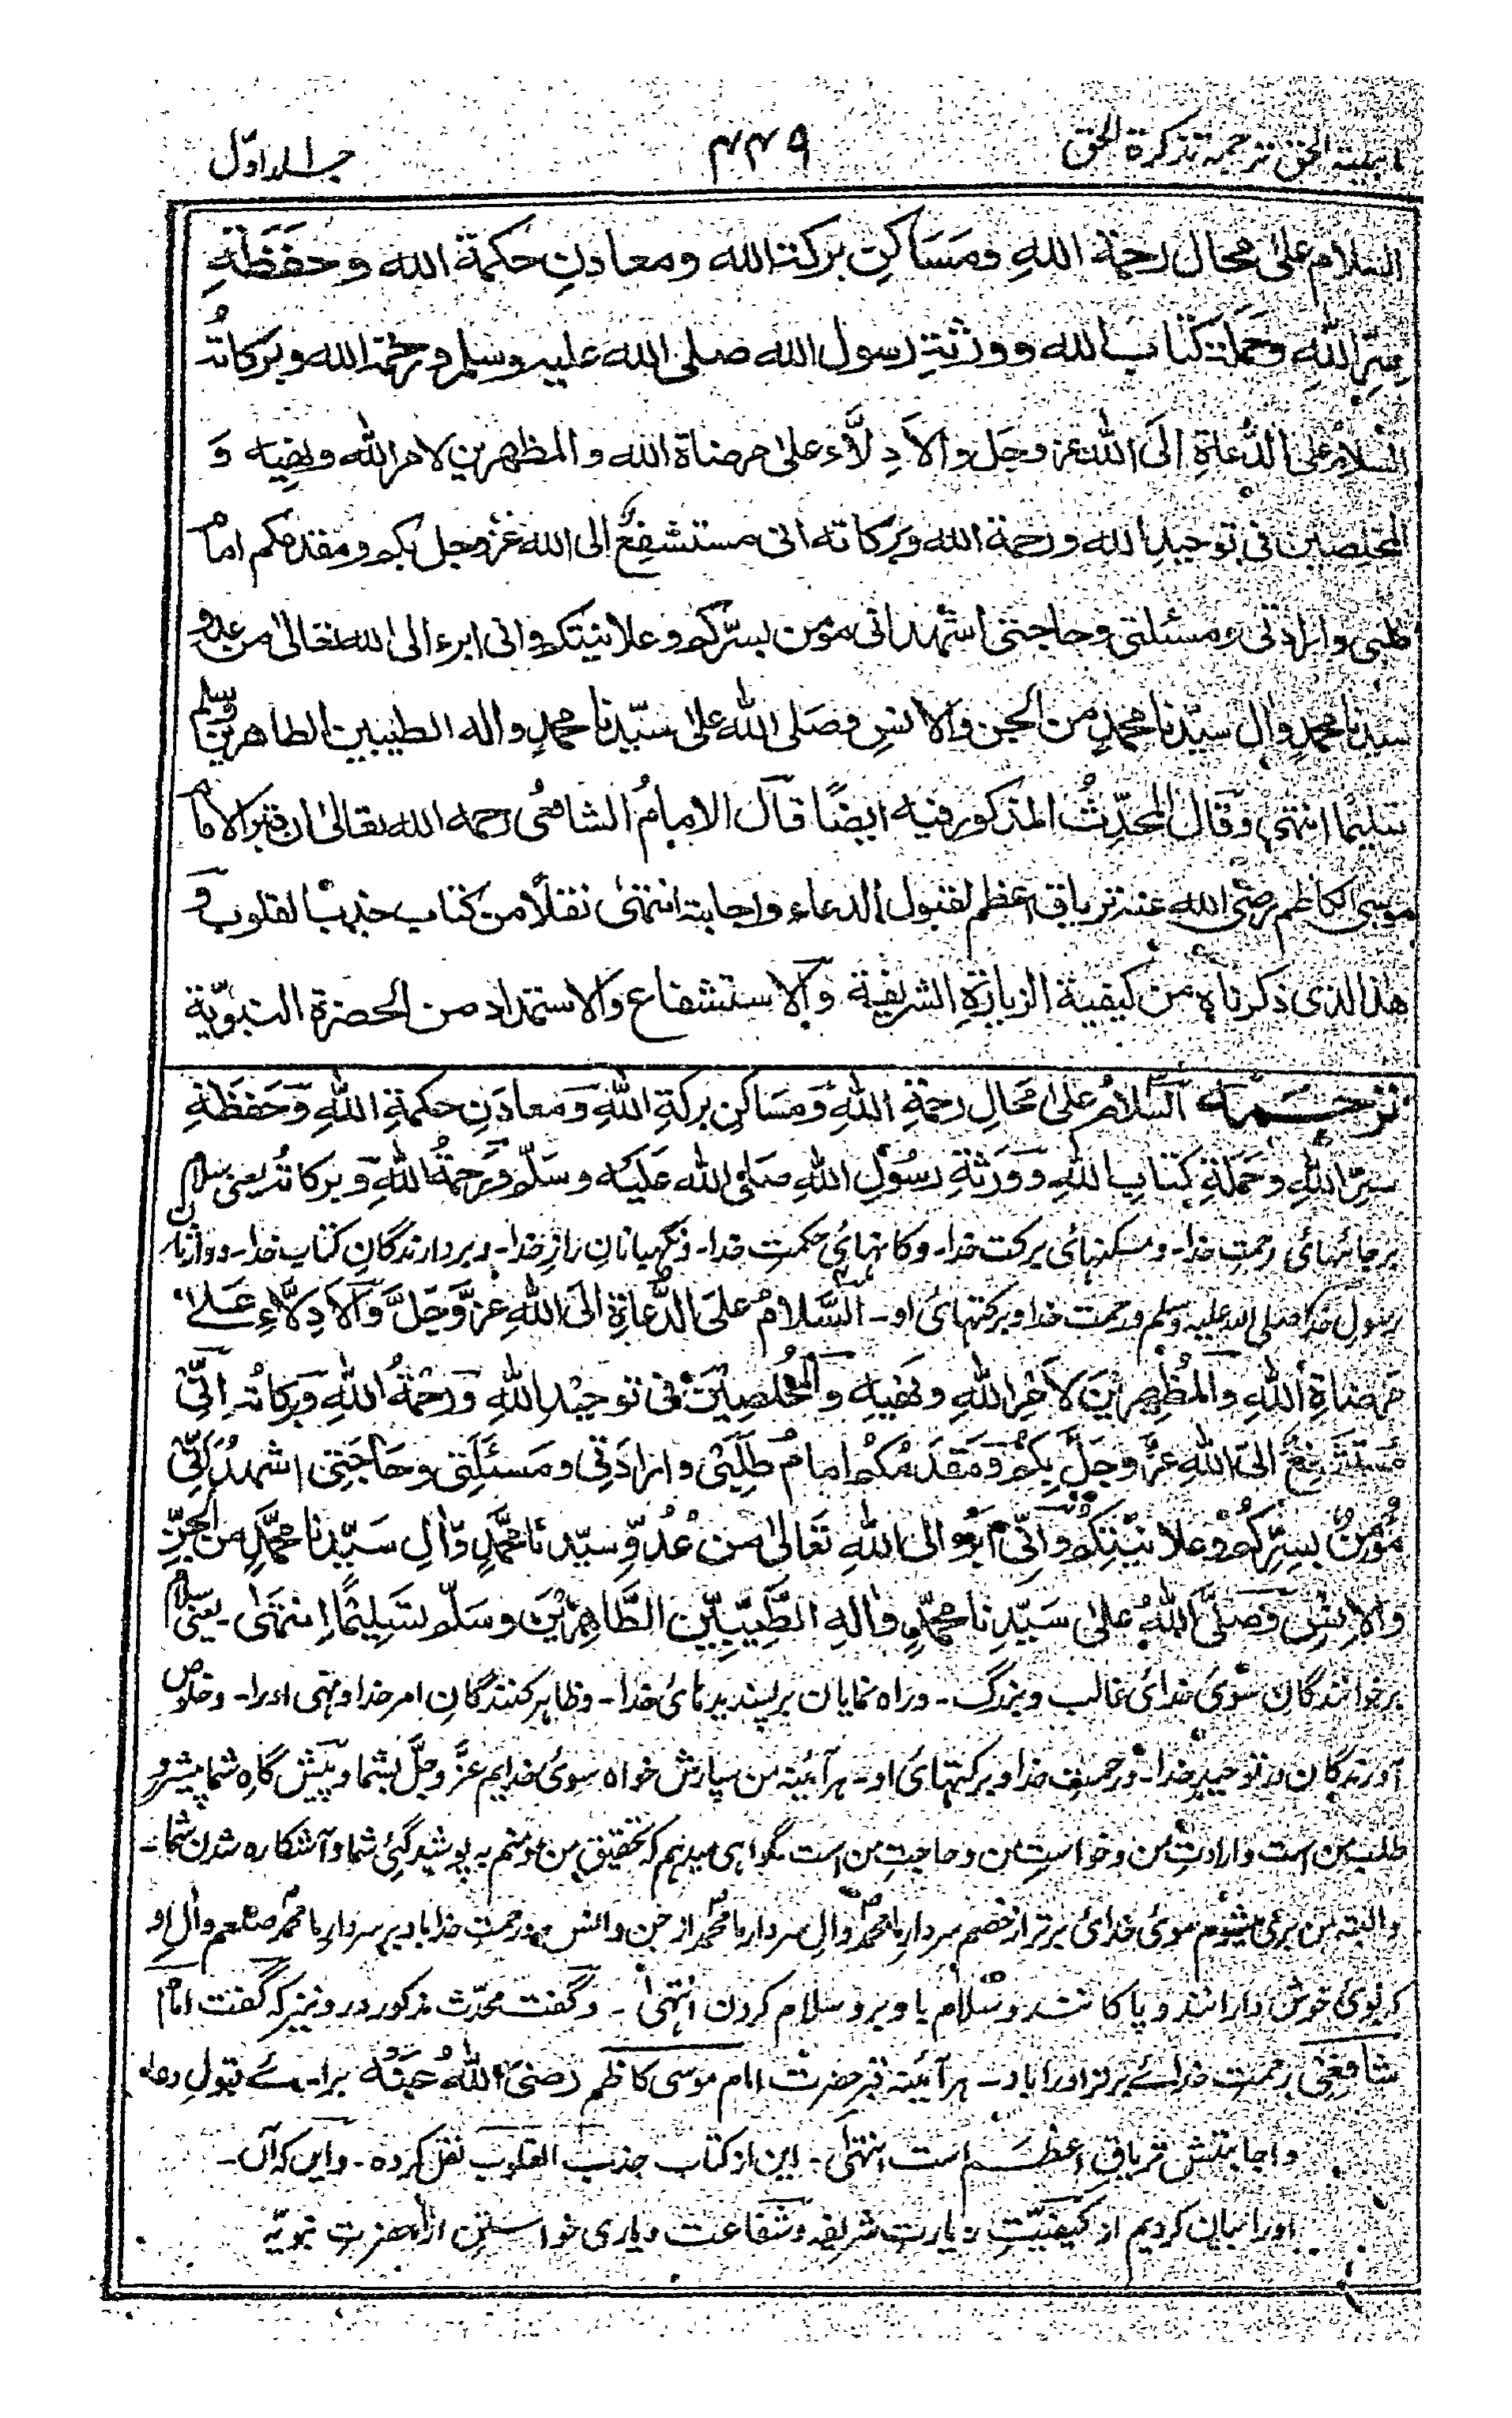 آئینة الحق ترجمة تذکرة الحق
۴۴۹
جلد اوّل
السلام علیٰ محال رحمة اللهِ ومَسَاکنِ برکت الله ومعادنِ حکمة الله وحَفَظَةِ
سِرِّ اللهِ وحَمَلَةِ کتاب الله ووَرَثَةِ رسول الله صلی الله علیه وسلم ورحمة الله وبرکاتُه
السلامُ علی الدُّعاةِ الَی الله عز وجَل والاَدِلَّاءِ علیٰ مرضاة الله والمظهرین لامر الله ونهیِه وَ
المخلصین فی توحیدِ الله ورحمة الله وبرکاته انی مستشفِعٌ الی الله عزوجل بکم ومقدمکم امامَ
طلبی وارادتی ومسئلتی وحاجتی اشهد انی مؤمن بسرّکم وعلانیتکم وانی ابرء الی الله تعالیٰ من عدوِ
سیدنا محمدٍ واٰل سیّدنا محمدٍ من الجن والانسِ وصَلی الله علیٰ سیّدنا محمدٍ واٰله الطیبین الطاهرین وسلم
تسلیمًا انتهی وقال المحدّثُ المذکور فیه ایضًا قال الامامُ الشافعی رحمه الله تعالیٰ ان قبر الامام
موسی الکاظم رضی الله عنه تریاق اعظم لقبول الدعاء واجابته انتهیٰ نقلًا من کتاب جذب القلوب و
هذا الذی ذکرناه من کیفیة الزیارةِ الشریفة والاستشفاع والاستمداد من الحضرة النبوّیة
ترجمه السّلامُ علیٰ مَحالِ رحمةِ اللهِ ومَسَاکنِ برکةِ اللهِ ومعادنِ حکمةِ اللهِ وحَفَظَةِ
سرِّ اللهِ وحَمَلَةِ کتابِ اللهِ ووَرَثَةِ رسُولِ اللهِ صَلی الله عَلَیْه وسَلّم ورَحمةُ اللهِ وبرکاتُه یعنی سلام
بر جائهائی رحمتِ خدا۔ ومسکنهائی برکت خدا۔ وکانهائی حکمتِ خدا۔ ونگهبانانِ رازِ خدا۔ وبردارندگانِ کتابِ خدا۔ ووارثانِ
رسولِ خدا صلی الله علیه وسلم ورحمت خدا وبرکتهائی او۔ السَّلامُ علَی الدُّعاةِ الَی اللهِ عزَّ وَجَلَّ وَالاَدِلَّاءِ عَلیٰ
مرضاةِ اللهِ والمُظهِرِیْنَ لاَمرِ اللهِ ونَهیِه والْمُخْلصِیْنَ فی توحیْدِ اللهِ ورَحْمَةُ اللهِ وبرکاتُه اِنِّیْ
مُستَشْفِعٌ الَی اللهِ عزَّ وجَلَّ بِکُمْ ومُقَدِّمُکُم امامَ طَلَبِیْ وارادَتی ومَسئَلَتی وحَاجَتِی اشهدُ اَنّی
مُؤمِنٌ بسِرِّکُم وعلانیَتِکُم واَنّی اَبرَءُ الی اللهِ تَعَالیٰ من عَدُوِّ سیّدنا محمّدٍ وّاٰلِ سَیّدنا محمّدٍ من الجنِّ
والاِنسِ وصَلَّی اللهُ علیٰ سَیّدِنا محمّدٍ واٰلهِ الطَّیِّبِیْن الطَّاهِرِیْنَ وسَلّم تَسْلِیْمًا اِنتَهیٰ۔ یعنی سلام
بر خوانندگان سوئی خدائی غالب وبزرگ۔ وراه نمایان بر پسندیدهائی خدا۔ وظاهر کنندگانِ امر خدا ونهی او را۔ وخلوص
آورندگان در توحیدِ خدا۔ ورحمتِ خدا وبرکتهائی او۔ هر آئینه من سپارش خواه سوئی خدایم عزَّ وجلَّ بشما وپیش گاهِ شما پیشرو
طلب من است وارادتِ من وخواستِ من وحاجتِ من است۔ گواهی میدهم که تحقیق من مومنم به پوشیدگئی شما وآشکاره شدن شما۔
والبته من بری میشوم سوئی خدائی برتر از خصم سردارِ ما محمدؐ وآلِ سردارِ ما محمّدؐ از جن وانس۔ ورحمتِ خدا باد بر سردارِ ما محمّد صلعم وآلِ او
که بوئی خوش دارانند وپاکانند وسلام باد بر وسلام کردن انتهیٰ۔ وگفت محدّث مذکور در و نیز که گفت امام
شافعی رحمتِ خدائے برتر او را باد۔ هر آئینه قبر حضرت امام موسی کاظم رضی اللهُ عَنْهُ برائے قبولِ دعا
واجابتش تریاقِ اعظم است انتهیٰ۔ این از کتاب جذب القلوب نقل کرده۔ واین که آن۔
او را بیان کردیم از کیفیّتِ زیارتِ شریفه وشفاعت ویاری خواستن از آنحضرتِ نبویّه